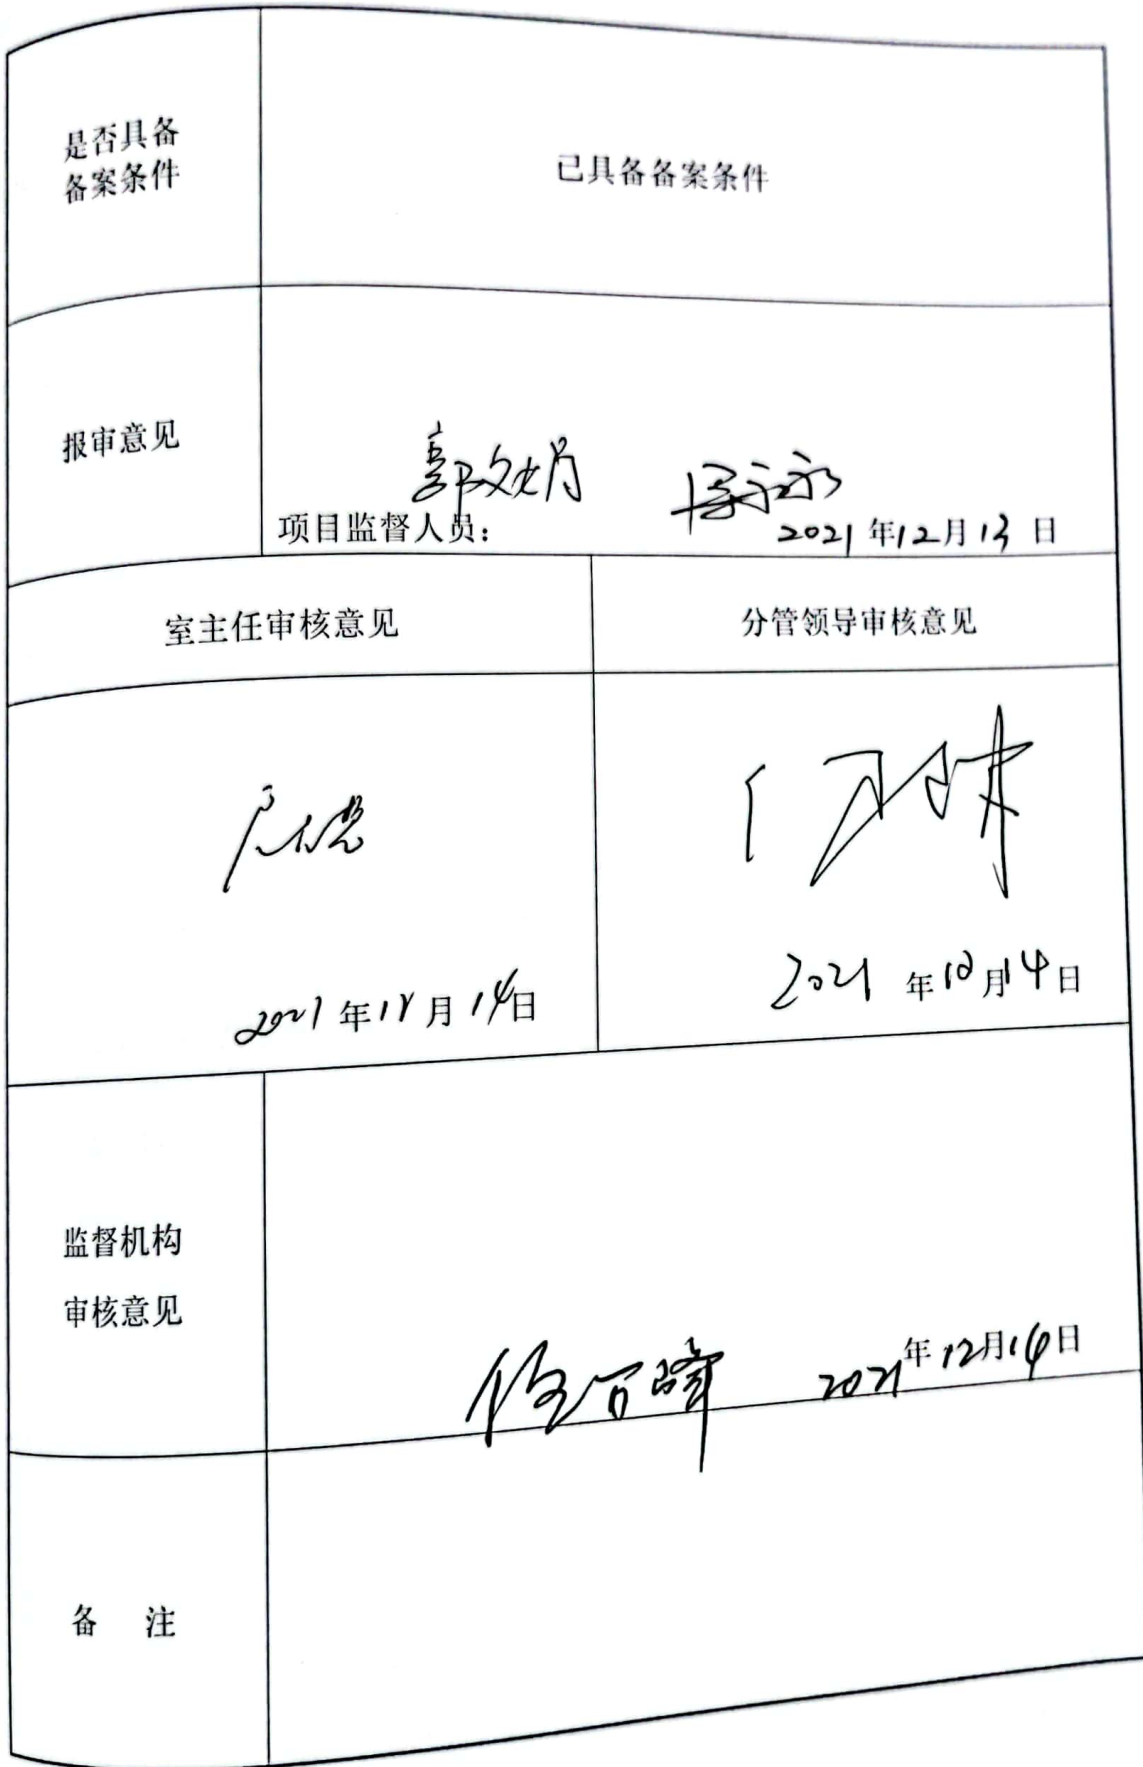 是否具备
备案条件
已具备备案条件
报审意见
郭文娟
项目监督人员：
2021年12月13日
室主任审核意见
分管领导审核意见
2021年12月14日
2021年12月14日
监督机构
审核意见
2021年12月14日
备 注